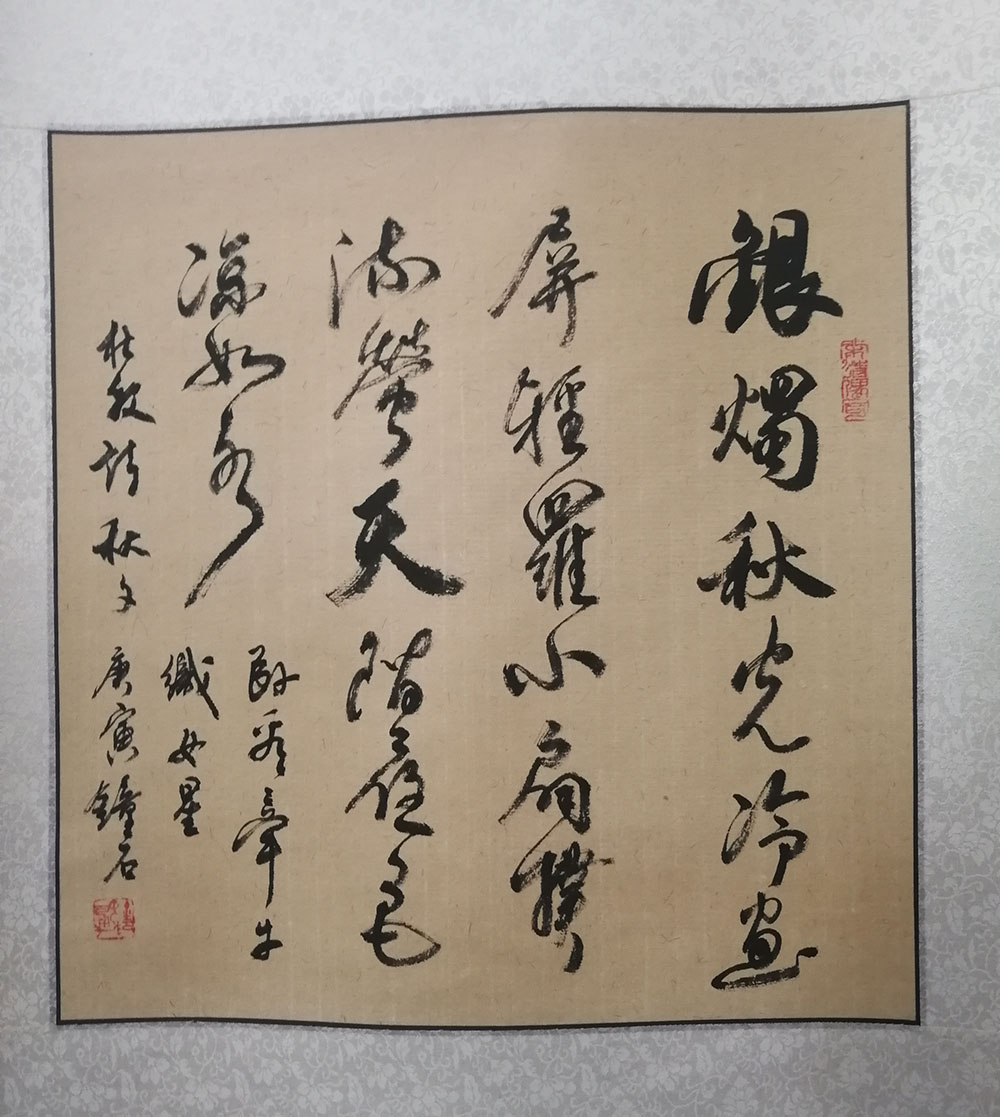 銀燭秋光冷畫
屏輕羅小扇撲
流螢天階夜色
涼如水
卧看牽牛
織女星
杜牧詩秋夕庚寅鐘石